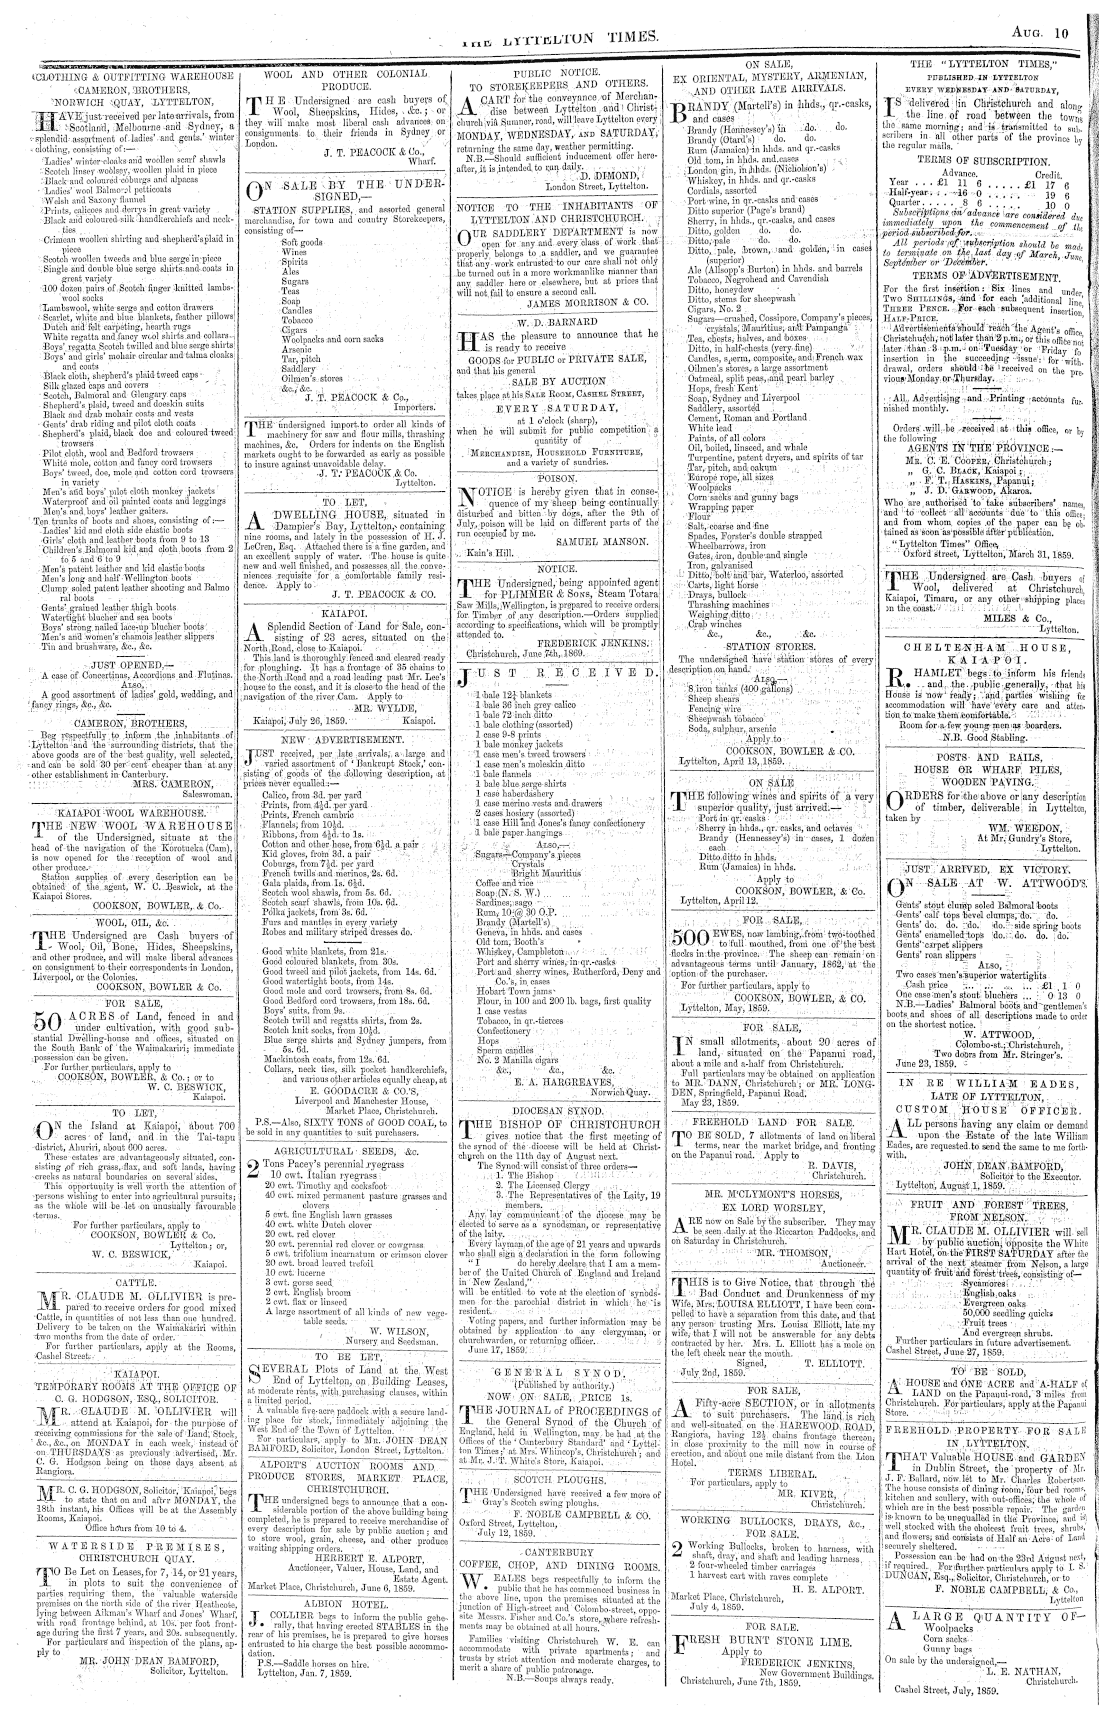 THE LYTTELTON TIMES.
AUG. 10
CLOTHING & OUTFITTING WAREHOUSE
CAMERON, BROTHERS,
NORWICH QUAY, LYTTELTON,
HAVE just received per late arrivals, from
Scotland, Melbourne and Sydney, a
splendid assortment of ladies' and gents.' winter
clothing, consisting of:—
Ladies' winter cloaks and woollen scarf shawls
Scotch linsey woolsey, woollen plaid in piece
Black and coloured coburgs and alpacas
Ladies' wool Balmoral petticoats
Welsh and Saxony flannel
Prints, calicoes and derrys in great variety
Black and colloured silk handkerchiefs and neck-
ties
Crimean woollen shirting and shepherd's plaid in
piece
Scotch woollen tweeds and blue serge in piece
Single and double blue serge shirts and coats in
great variety
100 dozen pairs of Scotch finger knitted lambs-
wool socks
Lambswool, white serge and cotton drawers
Scarlet, white and blue blankets, feather pillows
Dutch and felt carpeting, hearth rugs
White regatta and fancy wool shirts and collars
Boys' regatta Scotch twilled and blue serge shirts
Boys' and girls' mohair circular and talma cloaks
and coats
Black cloth, shepherd's plaid tweed caps
Silk glazed caps and covers
Scotch, Balmoral and Glengary caps
Shepherd's plaid, tweed and doeskin suits
Black and drab mohair coats and vests
Gents' drab riding and pilot cloth coats
Shepherd's plaid, black doe and coloured tweed
trowsers
Pilot cloth, wool and Bedford trowsers
White mole, cotton and fancy cord trowsers
Boys' tweed, doe, mole and cotton cord trowsers
in variety
Men's and boys' pilot cloth monkey jackets
Waterproof and oil painted coats and leggings
Men's and boys' leather gaiters.
Ten trunks of boots and shoes, consisting of:—
Ladies' kid and cloth side elastic boots
Girls' cloth and leather boots from 9 to 13
Children's Balmoral kid and cloth boots from 2
to 5 and 6 to 9
Men's patent leather and kid elastic boots
Men's long and half Wellington boots
Clump soled patent leather shooting and Balmo
ral boots
Gents' grained leather thigh boots
Watertight blucher and sea boots
Boys' strong nailed lace-up blucher boots
Men's and women's chamois leather slippers
Tin and brushware, &c., &c.
JUST OPENED,—
A case of Concertinas, Accordions and Flutinas.
ALSO,
A good assortment of ladies' gold, wedding, and
fancy rings, &c., &c.
CAMERON, BROTHERS,
Beg respectfully to inform the inhabitants of
Lyttelton and the surrounding districts, that the
above goods are of the best quality, well selected,
and can be sold 30 per cent cheaper than at any
other establishment in Canterbury.
MRS. CAMERON,
Saleswoman.
KAIAPOI WOOL WAREHOUSE.
THE NEW WOOL WAREHOUSE
of the Undersigned, situate at the
head of the navigation of the Korotueka (Cam),
is now opened for the reception of wool and
other produce.
Station supplies of every description can be
obtained of the agent, W. C. Beswick, at the
Kaiapoi Stores.
COOKSON, BOWLER, & Co.
WOOL, OIL, &c.
THE Undersigned are Cash buyers of
Wool, Oil, Bone, Hides, Sheepskins,
and other produce, and will make liberal advances
on consignment to their correspondents in London,
Liverpool, or the Colonies.
COOKSON, BOWLER & Co.
FOR SALE,
50 ACRES of Land, fenced in and
under cultivation, with good sub-
stantial Dwelling-house and offices, situated on
the South Bank of the Waimakariri; immediate
possession can be given.
For further particulars, apply to
COOKSON, BOWLER, & Co.; or to
W. C. BESWICK,
Kaiapoi.
TO LET,
ON the Island at Kaiapoi, about 700
acres of land, and in the Tai-tapu
district, Ahuriri, about 600 acres.
These estates are advantageously situated, con-
sisting of rich grass, flax, and soft lands, having
creeks as natural boundaries on several sides.
This opportunity is well worth the attention of
persons wishing to enter into agricultural pursuits;
as the whole will be let on unusually favourable
terms.
For further particulars, apply to
COOKSON, BOWLER & Co.
Lyttelton; or,
W. C. BESWICK,
Kaiapoi.
CATTLE.
MR. CLAUDE M. OLLIVIER is pre-
pared to receive orders for good mixed
Cattle, in quantities of not less than one hundred.
Delivery to be taken on the Waimakariri within
two months from the date of order.
For further particulars, apply at the Rooms,
Cashel Street.
KAIAPOI.
TEMPORARY ROOMS AT THE OFFICE OF
C. G. HODGSON, ESQ., SOLICITOR.
MR. CLAUDE M. OLLIVIER will
attend at Kaiapoi, for the purpose of
receiving commissions for the sale of Land, Stock,
&c., &c., on MONDAY in each week, instead of
on THURSDAYS as previously advertised, Mr.
C. G. Hodgson being on those days absent at
Rangiora.
MR. C. G. HODGSON, Solicitor, Kaiapoi, begs
to state that on and after MONDAY, the
18th instant, his Offices will be at the Assembly
Rooms, Kaiapoi.
Office hours from 10 to 4.
WATERSIDE PREMISES,
CHRISTCHURCH QUAY.
TO Be Let on Leases, for 7, 14, or 21 years,
in plots to suit the convenience of
parties requiring them, the valuable waterside
premises on the north side of the river Heathcote,
lying between Aikman's Wharf and Jones' Wharf,
with road frontage behind, at 10s. per foot front-
age during the first 7 years, and 20s. subsequently.
For particulars and inspection of the plans, ap-
ply to
MR. JOHN DEAN BAMFORD,
Solicitor, Lyttelton.
WOOL AND OTHER COLONIAL
PRODUCE.
THE Undersigned are cash buyers of
Wool, Sheepskins, Hides, &c.; or
they will make liberal cash advances on
consignments to their friends in Sydney or
London.
J. T. PEACOCK & Co.,
Wharf.
ON SALE BY THE UNDER-
SIGNED,—
STATION SUPPLIES, and assorted general
merchandise, for town and country Storekeepers,
consisting of—
Soft goods
Wines
Spirits
Ales
Sugars
Teas
Soap
Candles
Tobacco
Cigars
Woolpacks and corn sacks
Arsenic
Tar, pitch
Saddlery
Oilmen's stores
&c., &c.
J. T. PEACOCK & Co.,
Importers.
THE undersigned import to order all kinds of
machinery for saw and flour mills, thrashing
machines, &c. Orders for indents on the English
markets ought to be forwarded as early as possible
to insure against unavoidable delay.
J. T. PEACOCK & Co.
Lyttelton.
TO LET,
A DWELLING HOUSE, situated in
Dampier's Bay, Lyttelton, containing
nine rooms, and lately in the possession of H. J.
LeCren, Esq. Attached there is a fine garden, and
an excellent supply of water. The house is quite
new and well finished, and possesses all the conve-
niences requisite for a comfortable family resi-
dence. Apply to
J. T. PEACOCK & Co.
KAIAPOI.
A Splendid Section of Land for Sale, con-
sisting of 23 acres, situated on the
North Road, close to Kaiapoi.
This land is thoroughly fenced and cleared ready
for ploughing. It has a frontage of 35 chains to
the North Road and a road leading past Mr. Lee's
house to the coast, and it is close to the head of the
navigation of the river Cam. Apply to
MR. WYLDE,
Kaiapoi, July 26, 1859. Kaiapoi.
NEW ADVERTISEMENT.
JUST received, per late arrivals, a large and
varied assortment of 'Bankrupt Stock,' con-
sisting of goods of the following description, at
prices never equalled:—
Calico, from 3d. per yard
Prints, from 4½d. per yard
Prints, French cambric
Flannels, from 10½d.
Ribbons, from 4½d. to 1s.
Cotton and other hose, from 6½d. a pair
Kid gloves, from 3d. a pair
Coburgs, from 7½d. per yard
French twills and merinos, 2s. 6d.
Gala plaids, from 1s. 6½d.
Scotch wool shawls, from 5s. 6d.
Scotch scarf shawls, from 10s. 6d.
Polka jackets, from 3s. 6d.
Furs and mantles in every variety
Robes and military striped dresses do.
Good white blankets, from 21s.
Good coloured blankets, from 30s.
Good tweed and pilot jackets, from 14s. 6d.
Good watertight boots, from 14s.
Good mole and cord trowsers, from 8s. 6d.
Good Bedford cord trowsers, from 18s. 6d.
Boys' suits, from 9s.
Scotch twill and regatta shirts, from 2s.
Scotch knit socks, from 10½d.
Blue serge shirts and Sydney jumpers, from
5s. 6d.
Mackintosh coats, from 12s. 6d.
Collars, neck ties, silk pocket handkerchiefs,
and various other articles equally cheap, at
E. GOODACRE & CO.'S,
Liverpool and Manchester House,
Market Place, Christchurch.
P.S.—Also, SIXTY TONS of GOOD COAL, to
be sold in any quantities to suit purchasers.
AGRICULTURAL SEEDS, &c.
2 Tons Pacey's perennial ryegrass
10 cwt. Italian ryegrass
20 cwt. Timothy and cocksfoot
40 cwt. mixed permanent pasture grasses and
clovers
5 cwt. fine English lawn grasses
40 cwt. white Dutch clover
20 cwt. red clover
20 cwt. perennial red clover or cowgrass
5 cwt. trifolium incarnatum or crimson clover
20 cwt. broad leaved trefoil
10 cwt. lucerne
3 cwt. gorse seed
2 cwt. English broom
2 cwt. flax or linseed
A large assortment of all kinds of new vege-
table seeds.
W. WILSON,
Nursery and Seedsman.
TO BE LET,
SEVERAL Plots of Land at the West
End of Lyttelton, on Building Leases,
at moderate rents, with purchasing clauses, within
a limited period.
A valuable five-acre paddock with a secure land-
ing place for stock, immediately adjoining the
West End of the Town of Lyttelton.
For particulars, apply to MR. JOHN DEAN
BAMFORD, Solicitor, London Street, Lyttelton.
ALPORT'S AUCTION ROOMS AND
PRODUCE STORES, MARKET PLACE,
CHRISTCHURCH.
THE undersigned begs to announce that a con-
siderable portion of the above building being
completed, he is prepared to receive merchandise of
every description for sale by public auction; and
to store wool, grain, cheese, and other produce
waiting shipping orders.
HERBERT E. ALPORT,
Auctioneer, Valuer, House, Land, and
Estate Agent.
Market Place, Christchurch, June 6, 1859.
ALBION HOTEL.
J. COLLIER begs to inform the public gene-
rally, that having erected STABLES in the
rear of his premises, he is prepared to give horses
entrusted to his charge the best possible accommo-
dation.
P.S.—Saddle horses on hire.
Lyttelton, Jan. 7, 1859.
PUBLIC NOTICE.
TO STOREKEEPERS AND OTHERS.
A CART for the conveyance of Merchan-
dise between Lyttelton and Christ-
church, via Sumner, road, will leave Lyttelton every
MONDAY, WEDNESDAY, AND SATURDAY,
returning the same day, weather permitting.
N.B.—Should sufficient inducement offer here-
after, it is intended to run daily.
D. DIMOND,
London Street, Lyttelton.
NOTICE TO THE INHABITANTS OF
LYTTELTON AND CHRISTCHURCH.
OUR SADDLERY DEPARTMENT is now
open for any and every class of work that
properly belongs to a saddler, and we guarantee
that any work entrusted to our care shall not only
be turned out in a more workmanlike manner than
any saddler here or elsewhere, but at prices that
will not fail to ensure a second call.
JAMES MORRISON & CO.
W. D. BARNARD
HAS the pleasure to announce that he
is ready to receive
GOODS for PUBLIC or PRIVATE SALE,
and that his general
SALE BY AUCTION
takes place at his SALE ROOM, CASHEL STREET,
EVERY SATURDAY,
at 1 o'clock (sharp),
when he will submit for public competition a
quantity of
MERCHANDISE, HOUSEHOLD FURNITURE,
and a variety of sundries.
POISON.
NOTICE is hereby given that in conse-
quence of my sheep being continually
disturbed and bitten by dogs, after the 9th of
July, poison will be laid on different parts of the
run occupied by me.
SAMUEL MANSON.
Kain's Hill.
NOTICE.
THE Undersigned, being appointed agent
for PLIMMER & SONS, Steam Totara
Saw Mills, Wellington, is prepared to receive orders
for Timber of any description.—Orders supplied
according to specifications, which will be promptly
attended to.
FREDERICK JENKINS.
Christchurch, June 7th, 1869.
JUST RECEIVED.
1 bale 12¼ blankets
1 bale 36 inch grey calico
1 bale 72 inch ditto
1 bale clothing (assorted)
1 case 9-8 prints
1 bale monkey jackets
1 case men's tweed trowsers
1 case men's moleskin ditto
1 bale flannels
1 bale blue serge shirts
1 case haberdashery
1 case merino vests and drawers
2 cases hosiery (assorted)
1 case Hill and Jones's fancy confectionery
1 bale paper hangings
ALSO,—
Sugars—Company's pieces
Crystals
Bright Mauritius
Coffee and rice
Soap (N. S. W.)
Sardines, sago
Rum, 10 @ 30 O.P.
Brandy (Martell's)
Geneva, in hhds. and cases
Old tom, Booth's
Whiskey, Campbleton
Port and sherry wines, in qr.-casks
Port and sherry wines, Rutherford, Deny and
Co.'s, in cases
Hobart Town jams
Flour, in 100 and 200 lb. bags, first quality
1 case vestas
Tobacco, in qr.-tierces
Confectionery
Hops
Sperm candles
No. 2 Manilla cigars
&c., &c., &c.
E. A. HARGREAVES,
Norwich Quay.
DIOCESAN SYNOD.
THE BISHOP OF CHRISTCHURCH
gives notice that the first meeting of
the synod of the diocese will be held at Christ-
church on the 11th day of August next.
The Synod will consist of three orders—
1. The Bishop
2. The Licensed Clergy
3. The Representatives of the Laity, 19
members.
Any lay communicant of the diocese may be
elected to serve as a synodsman, or representative
of the laity.
Every layman of the age of 21 years and upwards
who shall sign a declaration in the form following
"I do hereby declare that I am a mem-
ber of the United Church of England and Ireland
in New Zealand,"
will be entitled to vote at the election of synods-
men for the parochial district in which he is
resident.
Voting papers, and further information may be
obtained by application to any clergyman, or
churchwarden, or returning officer.
June 17, 1859.
GENERAL SYNOD.
(Published by authority.)
NOW ON SALE, PRICE 1s.
THE JOURNAL of PROCEEDINGS of
the General Synod of the Church of
England, held in Wellington, may be had at the
Offices of the 'Canterbury Standard' and 'Lyttel-
ton Times;' at Mrs. Whincop's, Christchurch; and
at Mr. J. T. White's Store, Kaiapoi.
SCOTCH PLOUGHS.
THE Undersigned have received a few more of
Gray's Scotch swing ploughs.
F. NOBLE CAMPBELL & CO.
Oxford Street, Lyttelton,
July 12, 1859.
CANTERBURY
COFFEE, CHOP, AND DINING ROOMS.
W. EALES begs respectfully to inform the
public that he has commenced business in
the above line, upon the premises situated at the
junction of High-street and Colombo-street, oppo-
site Messrs. Fisher and Co.'s store, where refresh-
ments may be obtained at all hours.
Families visiting Christchurch W. E. can
accommodate with private apartments; and
trusts by strict attention and moderate charges, to
merit a share of public patronage.
N.B.—Soups always ready.
ON SALE,
EX ORIENTAL, MYSTERY, ARMENIAN,
AND OTHER LATE ARRIVALS.
BRANDY (Martell's) in hhds., qr.-casks,
and cases
Brandy (Hennessey's) in do. do.
Brandy (Otard's) do. do.
Rum (Jamaica) in hhds. and qr.-casks
Old tom, in hhds. and cases
London gin, in hhds. (Nicholson's)
Whiskey, in hhds. and qr.-casks
Cordials, assorted
Port wine, in qr.-casks and cases
Ditto superior (Page's brand)
Sherry, in hhds., qr.-casks, and cases
Ditto, golden do. do.
Ditto, pale do. do.
Ditto, pale, brown, and golden, in cases
(superior)
Ale (Allsopp's Burton) in hhds. and barrels
Tobacco, Negrohead and Cavendish
Ditto, honeydew
Ditto, stems for sheepwash
Cigars, No. 2
Sugars—crushed, Cossipore, Company's pieces,
crystals, Mauritius, and Pampanga
Tea, chests, halves, and boxes
Ditto, in half-chests (very fine)
Candles, sperm, composite, and French wax
Oilmen's stores, a large assortment
Oatmeal, split peas, and pearl barley
Hops, fresh Kent
Soap, Sydney and Liverpool
Saddlery, assorted
Cement, Roman and Portland
White lead
Paints, of all colors
Oil, boiled, linseed, and whale
Turpentine, patent dryers, and spirits of tar
Tar, pitch, and oakum
Europe rope, all sizes
Woolpacks
Corn sacks and gunny bags
Wrapping paper
Flour
Salt, coarse and fine
Spades, Forster's double strapped
Wheelbarrows, iron
Gates, iron, double and single
Iron, galvanised
Ditto, bolt and bar, Waterloo, assorted
Carts, light horse
Drays, bullock
Thrashing machines
Weighing ditto
Crab winches
&c., &c., &c.
STATION STORES.
The undersigned have station stores of every
description on hand.
ALSO,—
8 iron tanks (400 gallons)
Sheep shears
Fencing wire
Sheepwash tobacco
Soda, sulphur, arsenic
Apply to
COOKSON, BOWLER & CO.
Lyttelton, April 13, 1859.
ON SALE
THE following wines and spirits of a very
superior quality, just arrived.—
Port in qr.-casks
Sherry in hhds., qr. casks, and octaves
Brandy (Hennessey's) in cases, 1 dozen
each
Ditto ditto in hhds.
Rum (Jamaica) in hhds.
Apply to
COOKSON, BOWLER, & CO.
Lyttelton, April 12.
FOR SALE,
500 EWES, now lambing, from two-toothed
to full mouthed, from one of the best
flocks in the province. The sheep can remain on
advantageous terms until January, 1862, at the
option of the purchaser.
For further particulars, apply to
COOKSON, BOWLER, & CO.
Lyttelton, May, 1859.
FOR SALE,
IN small allotments, about 20 acres of
land, situated on the Papanui road,
about a mile and a-half from Christchurch.
Full particulars may be obtained on application
to MR. DANN, Christchurch; or MR. LONG-
DEN, Springfield, Papanui Road.
May 23, 1859.
FREEHOLD LAND FOR SALE.
TO BE SOLD, 7 allotments of land on liberal
terms, near the market bridge, and fronting
on the Papanui road. Apply to
R. DAVIS,
Christchurch.
MR. M'CLYMONT'S HORSES,
EX LORD WORSLEY,
ARE now on Sale by the subscriber. They may
be seen daily at the Riccarton Paddocks, and
on Saturday in Christchurch.
MR. THOMSON,
Auctioneer.
THIS is to Give Notice, that through the
Bad Conduct and Drunkenness of my
Wife, Mrs. LOUISA ELLIOTT, I have been com-
pelled to have a separation from this date, and that
any person trusting Mrs. Louisa Elliott, late my
wife, that I will not be answerable for any debts
contracted by her. Mrs. L. Elliott has a mole on
the left cheek near the mouth.
Signed, T. ELLIOTT.
July 2nd, 1859.
FOR SALE,
A Fifty-acre SECTION, or in allotments
to suit purchasers. The land is rich
and well-situated on the HAREWOOD ROAD,
Rangiora, having 12½ chains frontage thereon;
in close proximity to the mill now in course of
erection, and about one mile distant from the Lion
Hotel.
TERMS LIBERAL.
For particulars, apply to
MR. KIVER,
Christchurch.
WORKING BULLOCKS, DRAYS, &c.,
FOR SALE.
2 Working Bullocks, broken to harness, with
shaft, dray, and shaft and leading harness
2 four-wheeled timber carriages
1 harvest cart with raves complete
H. E. ALPORT.
Market Place, Christchurch,
July 4, 1859.
FOR SALE.
FRESH BURNT STONE LIME.
Apply to
FREDERICK JENKINS,
New Government Buildings.
Christchurch, June 7th, 1859.
THE "LYTTELTON TIMES,"
PUBLISHED IN LYTTELTON
EVERY WEDNESDAY AND SATURDAY,
IS delivered in Christchurch and along
the line of road between the towns
the same morning; and is transmitted to sub-
scribers in all other parts of the province by
the regular mails.
TERMS OF SUBSCRIPTION.
Advance. Credit.
Year ... £1 11 6 ..... £1 17 6
Half-year... 16 0 ..... 19 6
Quarter.... 8 6 ..... 10 0
Subscriptions in advance are considered due
immediately upon the commencement of the
period subscribed for.
All periods of subscription should be made
to terminate on the last day of March, June,
September or December.
TERMS OF ADVERTISEMENT.
For the first insertion: Six lines and under,
TWO SHILLINGS, and for each additional line,
THREE PENCE. For each subsequent insertion,
HALF-PRICE.
Advertisements should reach the Agent's office,
Christchurch, not later than 2 p.m., or this office not
later than 3 p.m. on Tuesday or Friday fo
insertion in the succeeding issue: for with-
drawal, orders should be received on the pre-
vious Monday or Thursday.
All Advertising and Printing accounts fur-
nished monthly.
Orders will be received at this office, or by
the following
AGENTS IN THE PROVINCE:—
MR. C. E. COOPER, Christchurch;
" G. C. BLACK, Kaiapoi;
" F. T. HASKINS, Papanui;
" J. D. GARWOOD, Akaroa.
Who are authorised to take subscribers' names,
and to collect all accounts due to this office;
and from whom copies of the paper can be ob-
tained as soon as possible after publication.
"Lyttelton Times" Office,
Oxford street, Lyttelton, March 31, 1859.
THE Undersigned are Cash buyers of
Wool, delivered at Christchurch,
Kaiapoi, Timaru, or any other shipping places
on the coast.
MILES & Co.,
Lyttelton.
CHELTENHAM HOUSE,
KAIAPOI.
R. HAMLET begs to inform his friends
and the public generally, that his
House is now ready; and parties wishing for
accommodation will have every care and atten-
tion to make them comfortable.
Room for a few young men as boarders.
N.B. Good Stabling.
POSTS AND RAILS,
HOUSE OR WHARF PILES,
WOODEN PAVING.
ORDERS for the above or any description
of timber, deliverable in Lyttelton,
taken by
WM. WEEDON,
At Mr. Gundry's Store,
Lyttelton.
JUST ARRIVED, EX VICTORY.
ON SALE AT W. ATTWOOD'S.
Gents' stout clump soled Balmoral boots
Gents' calf tops bevel clumps, do. do.
Gents' do. do. do. side spring boots
Gents' enamelled tops do. do. do.
Gents' carpet slippers
Gents' roan slippers
ALSO,
Two cases men's superior watertights
Cash price ... ... ... ... £1 1 0
One case men's stout bluchers ... 0 13 0
N.B.—Ladies' Balmoral boots and gentlemen's
boots and shoes of all descriptions made to order
on the shortest notice.
W. ATTWOOD,
Colombo-st., Christchurch,
Two doors from Mr. Stringer's.
June 23, 1859.
IN RE WILLIAM EADES,
LATE OF LYTTELTON,
CUSTOM HOUSE OFFICER.
ALL persons having any claim or demand
upon the Estate of the late William
Eades, are requested to send the same to me forth-
with,
JOHN DEAN BAMFORD,
Solicitor to the Executor.
Lyttelton, August 1, 1859.
FRUIT AND FOREST TREES,
FROM NELSON.
MR. CLAUDE M. OLLIVIER will sell
by public auction, opposite the White
Hart Hotel, on the FIRST SATURDAY after the
arrival of the next steamer from Nelson, a large
quantity of fruit and forest trees, consisting of—
Sycamores
English oaks
Evergreen oaks
50,000 seedling quicks
Fruit trees
And evergreen shrubs.
Further particulars in future advertisement.
Cashel Street, June 27, 1859.
TO BE SOLD,
A HOUSE and ONE ACRE and A-HALF of
LAND on the Papanui-road, 3 miles from
Christchurch. For particulars, apply at the Papanui
Store.
FREEHOLD PROPERTY FOR SALE
IN LYTTELTON.
THAT Valuable HOUSE and GARDEN
in Dublin Street, the property of Mr.
J. F. Ballard, now let to Mr. Charles Robertson.
The house consists of dining room, four bed rooms,
kitchen and scullery, with out-offices, the whole of
which are in the best possible repair. The garden
is known to be unequalled in the Province, and is
well stocked with the choicest fruit trees, shrubs,
and flowers; and consists of Half an Acre of Land
securely sheltered.
Possession can be had on the 23rd August next,
if required. For further particulars apply to I. S.
DUNCAN, Esq., Solicitor, Christchurch, or to
F. NOBLE CAMPBELL, & Co.,
Lyttelton
A LARGE QUANTITY OF—
Woolpacks
Corn sacks
Gunny bags
On sale by the undersigned,—
L. E. NATHAN,
Christchurch.
Cashel Street, July, 1859.